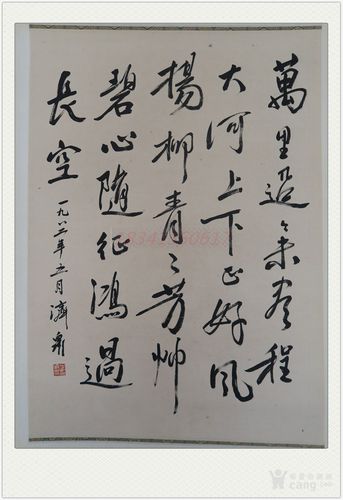 萬里迢〻未程
大河上下正好風
揚柳青〻芳艸
碧心隨征鴻過
長空
一九八二年五月濟
cang.com